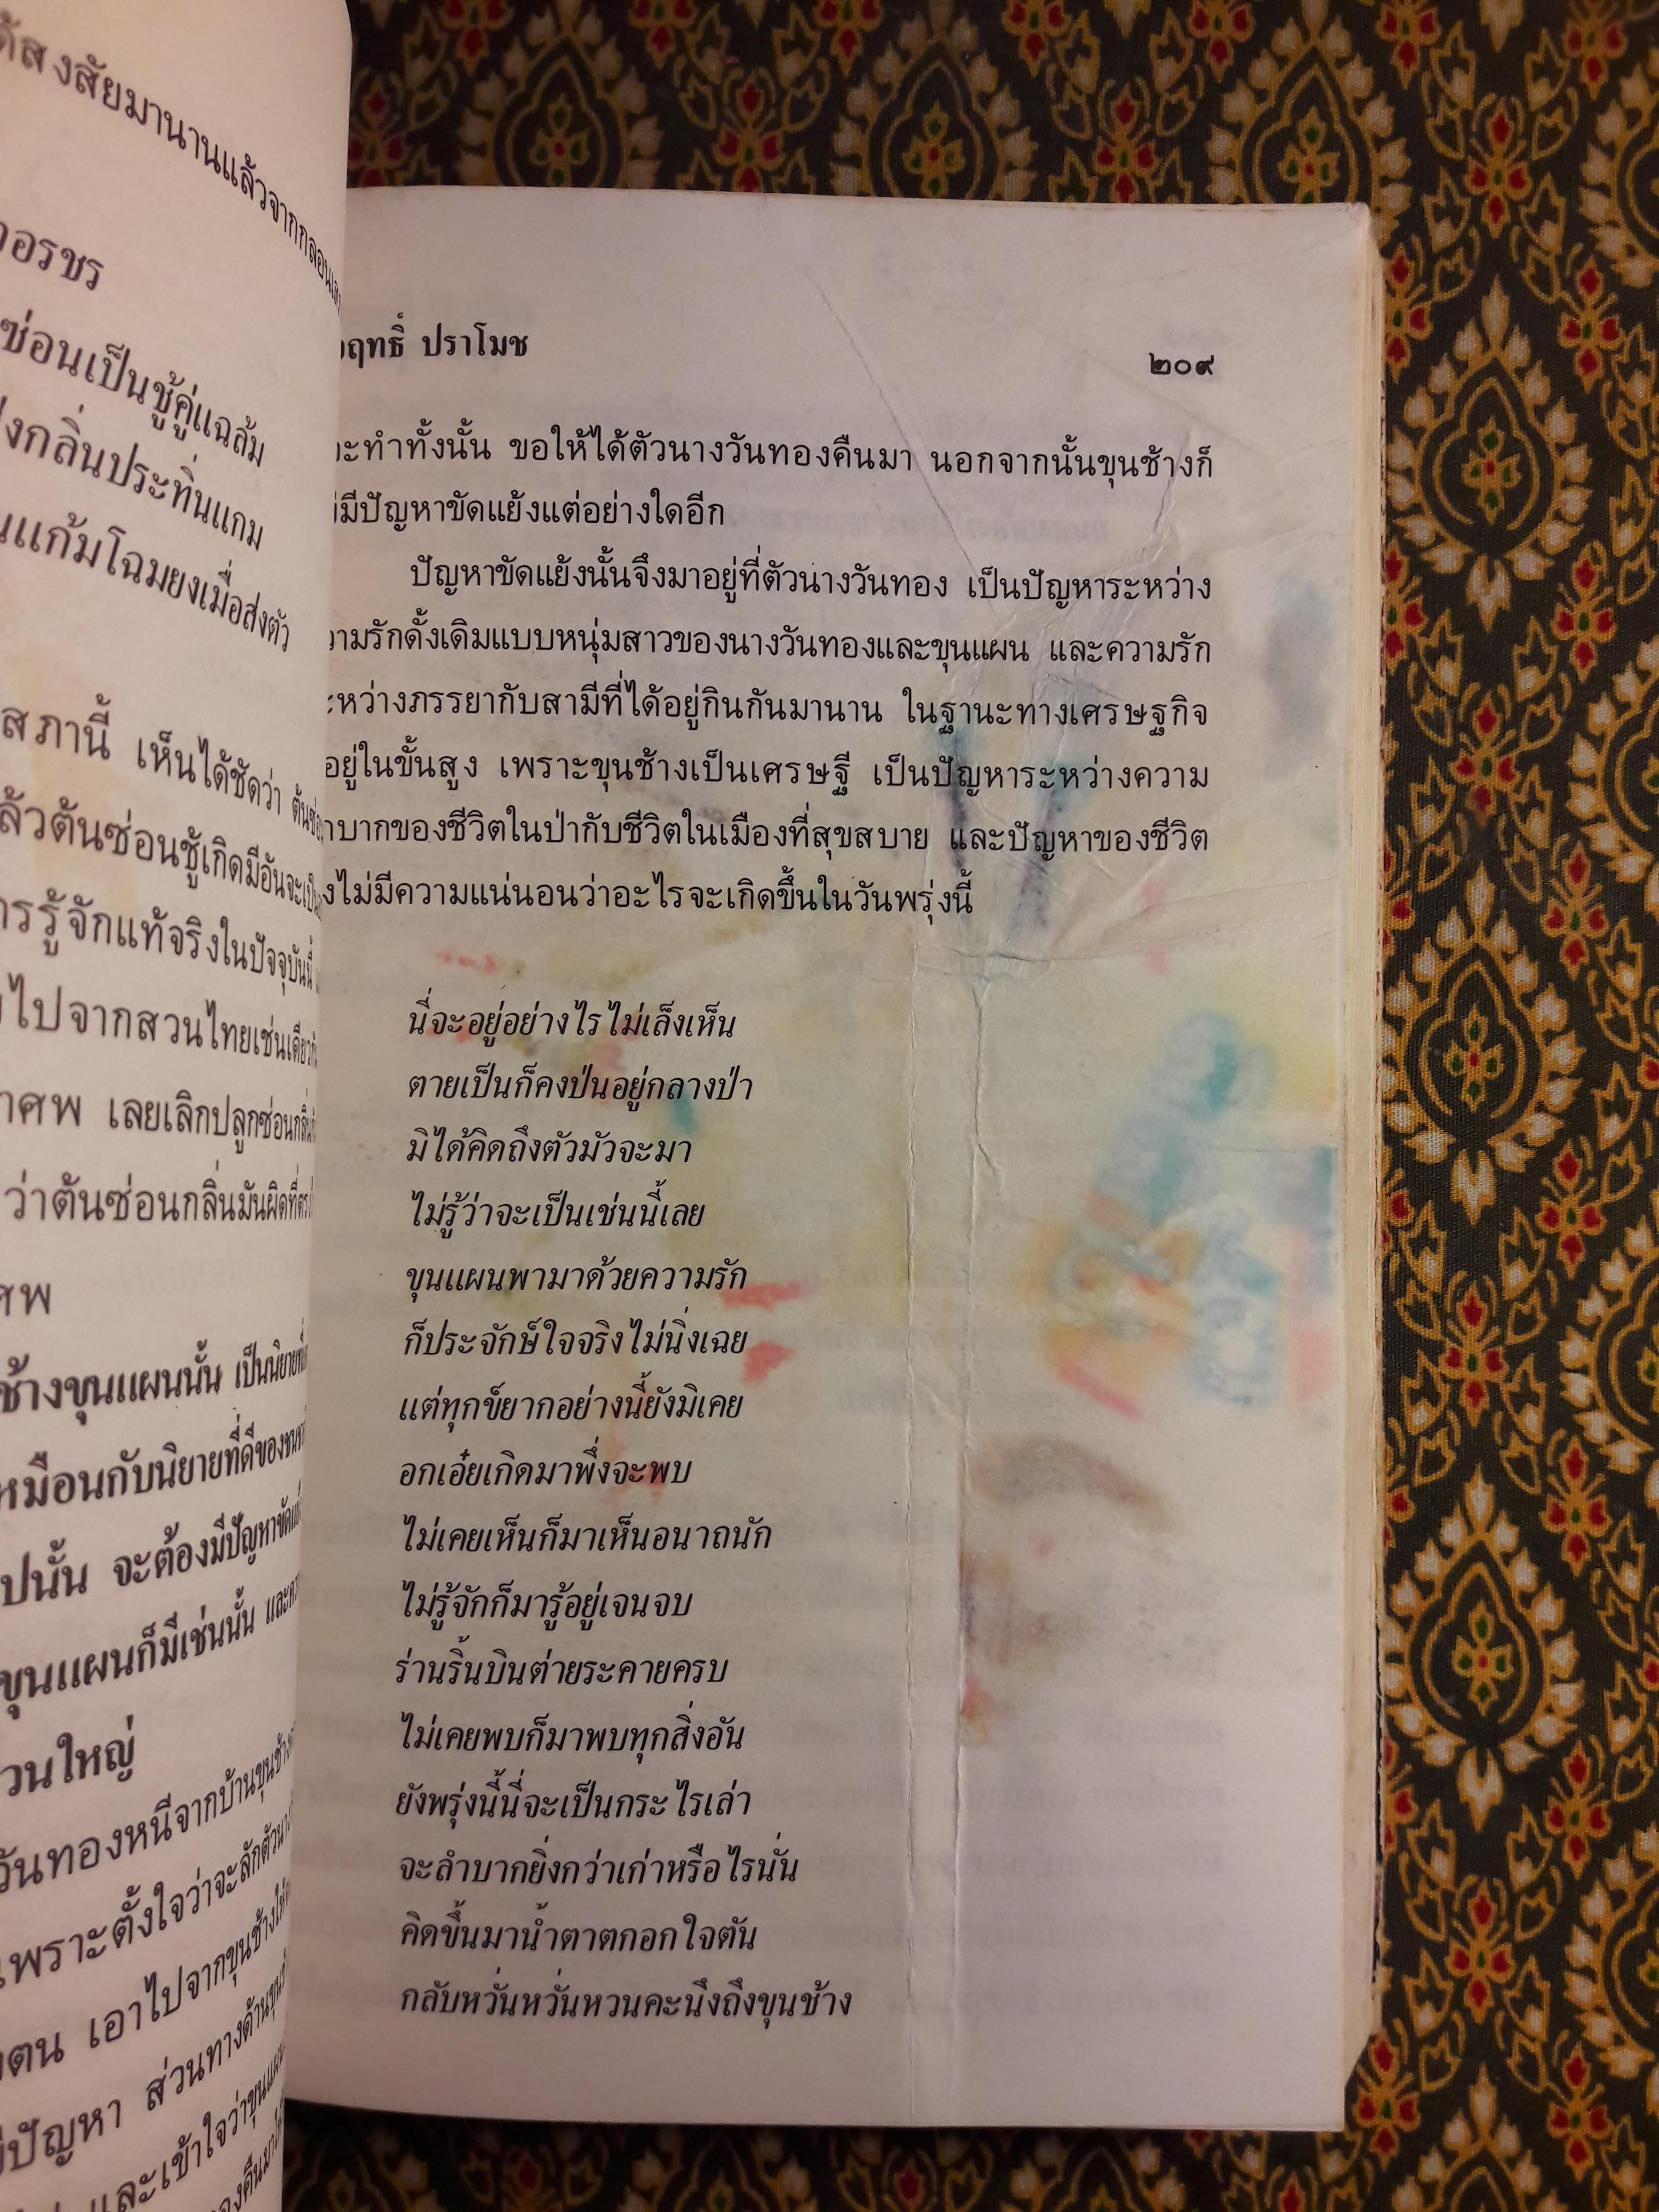 สงสัยมานานแล้วจากกลอน
อรชร
ซ่อนเป็นชู้คู่แฉล้ม
งกลิ่นประทิ่นแกม
แก้มโฉมยงเมื่อส่งตัว
สภานี้ เห็นได้ชัดว่า
ล้วต้นซ่อนชู้เกิดมีอันจะเป็น
รรู้จักแท้จริงในปัจจุบันนี้
ไปจากสวนไทยเช่นเดียว
าศพ เลยเลิกปลูกซ่อนกลิ่น
ว่าต้นซ่อนกลิ่นมันผิดที่ตร
ศพ
ช้างขุนแผนนั้น เป็นนิยายที่
หมือนกับนิยายที่ดีของ
ปนั้น จะต้องมีปัญหาขัดแย้
ขุนแผนก็มีเช่นนั้น และ
วนใหญ่
วันทองหนีจากบ้านขุนช้าง
เพราะตั้งใจว่าจะลักตัวนาง
ตน เอาไปจากขุนช้างให้
ปัญหา ส่วนทางด้านขุน
และเข้าใจว่าขุนแผน
ฤทธิ์ ปราโมช
๒๐๙
ะทำทั้งนั้น ขอให้ได้ตัวนางวันทองคืนมา นอกจากนั้นขุนช้างก็
มีปัญหาขัดแย้งแต่อย่างใดอีก
ปัญหาขัดแย้งนั้นจึงมาอยู่ที่ตัวนางวันทอง เป็นปัญหาระหว่าง
ามรักดั้งเดิมแบบหนุ่มสาวของนางวันทองและขุนแผน และความรัก
ะหว่างภรรยากับสามีที่ได้อยู่กินกันมานาน ในฐานะทางเศรษฐกิจ
อยู่ในขั้นสูง เพราะขุนช้างเป็นเศรษฐี เป็นปัญหาระหว่างความ
าบากของชีวิตในป่ากับชีวิตในเมืองที่สุขสบาย และปัญหาของชีวิต
งไม่มีความแน่นอนว่าอะไรจะเกิดขึ้นในวันพรุ่งนี้
นี่จะอยู่อย่างไรไม่เล็งเห็น
ตายเป็นก็คงป่นอยู่กลางป่า
มิได้คิดถึงตัวมัวจะมา
ไม่รู้ว่าจะเป็นเช่นนี้เลย
ขุนแผนพามาด้วยความรัก
ก็ประจักษ์ใจจริงไม่นิ่งเฉย
แต่ทุกข์ยากอย่างนี้ยังมิเคย
อกเอ๋ยเกิดมาพึ่งจะพบ
ไม่เคยเห็นก็มาเห็นอนาถนัก
ไม่รู้จักก็มารู้อยู่เจนจบ
ร่านริ้นบินต่ายระคายครบ
ไม่เคยพบก็มาพบทุกสิ่งอัน
ยังพรุ่งนี้นี่จะเป็นกระไรเล่า
จะลำบากยิ่งกว่าเก่าหรือไรนั่น
คิดขึ้นมาน้ำตาตกอกใจตัน
กลับหวั่นหวั่นหวนคะนึงถึงขุนช้าง